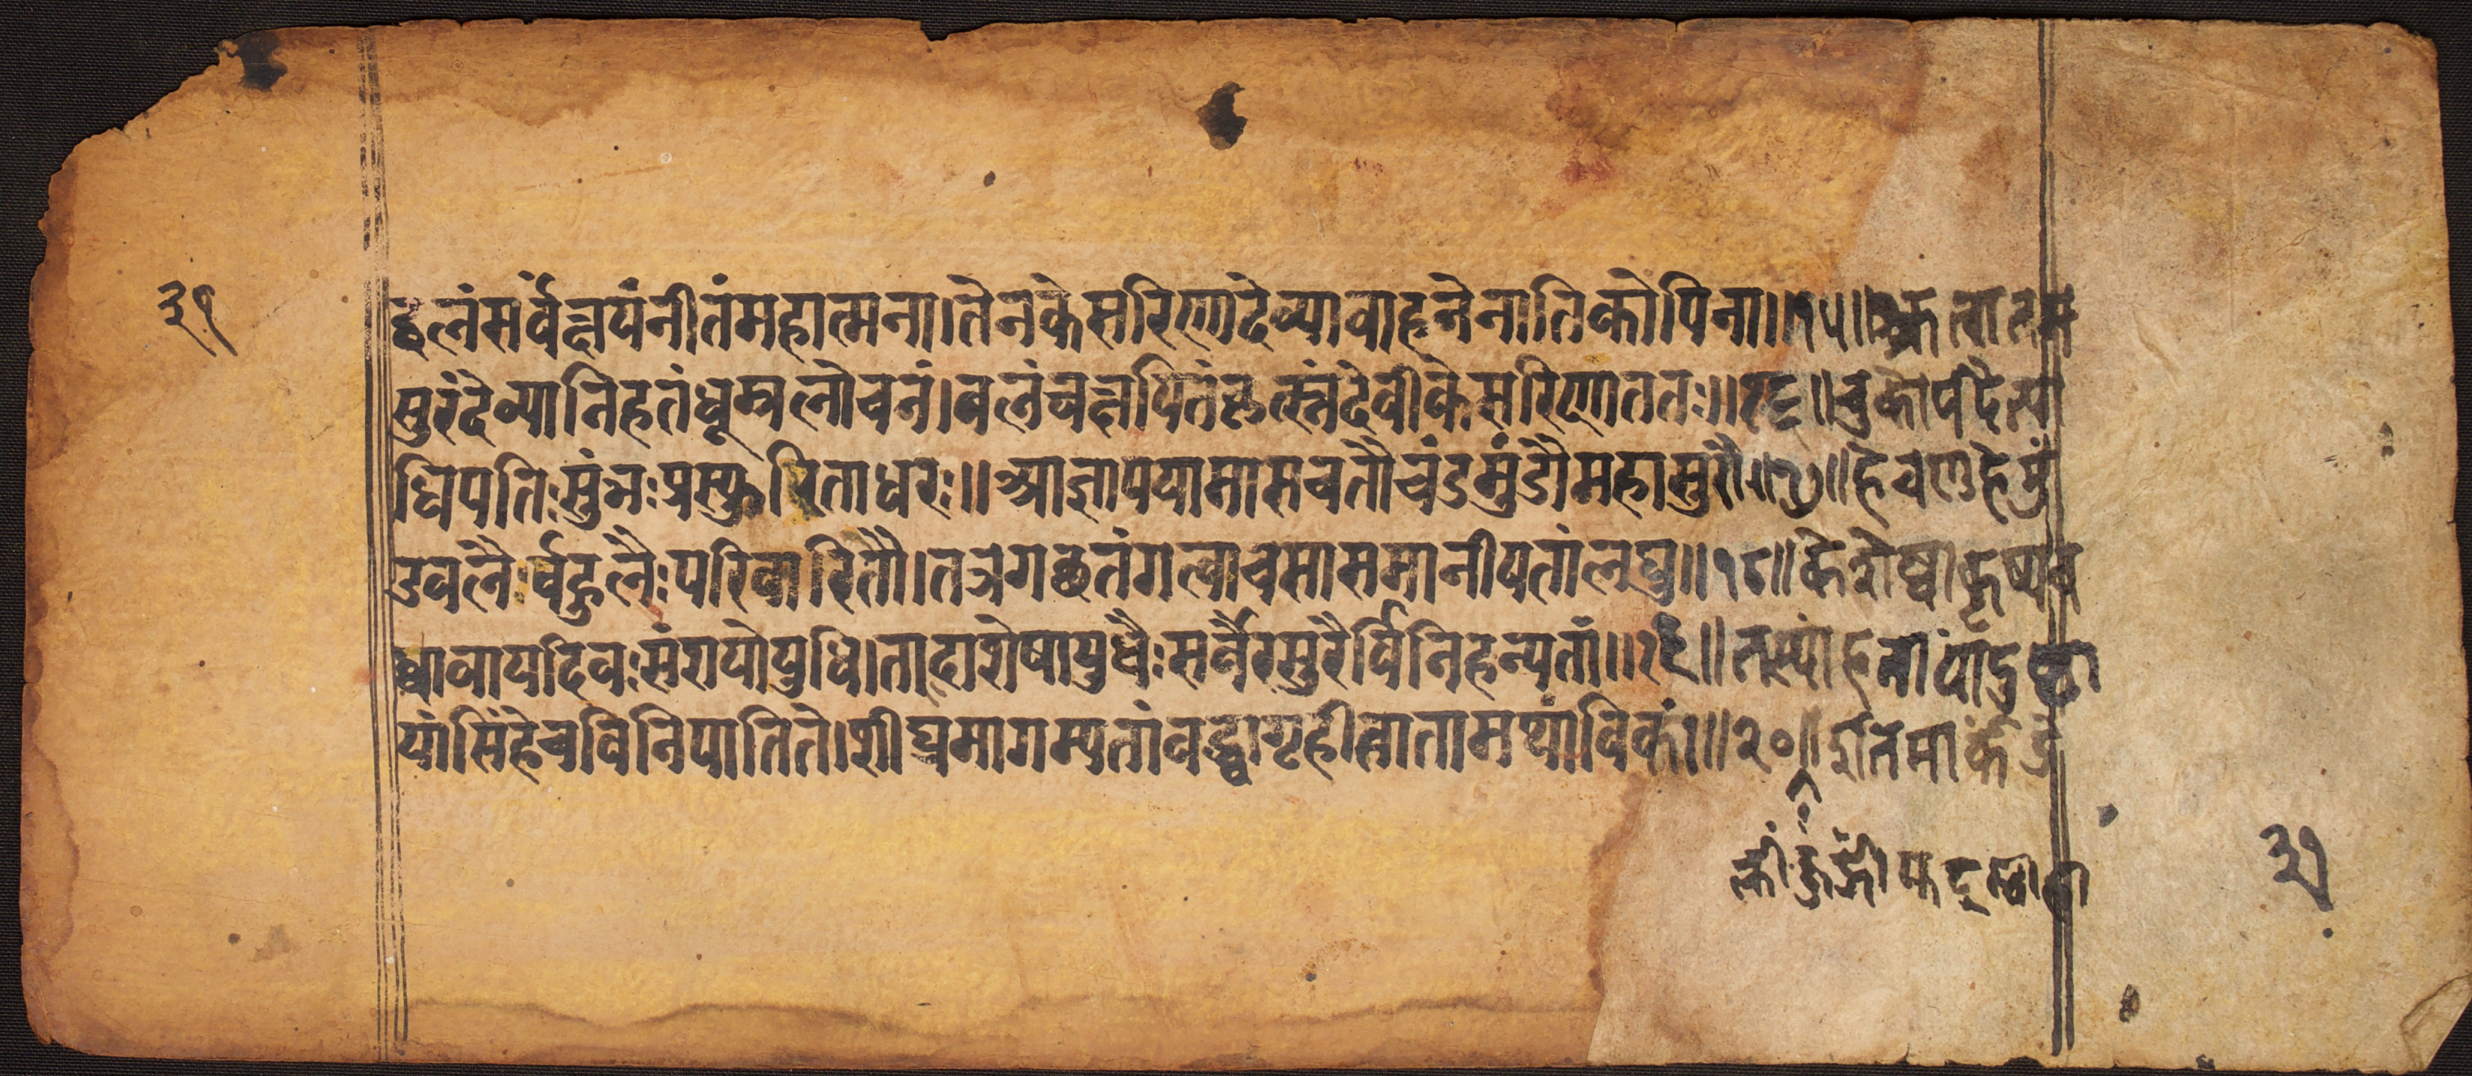 ३१
द्बलंसर्वंक्षयंनीतंमहात्मना।तेनकेसरिणादेव्यावाहनेनातिकोपिना॥१५॥श्रुत्वातम
सुरंदेव्यानिहतंधूम्रलोचनं।बलंचक्षपितंकृत्स्नंदेवीकेसरिणाततः॥१६॥चुकोपदैत्या
धिपतिःसुंभःप्रस्फुरिताधरः॥आज्ञापयामासचतौचंडमुंडौमहासुरौ॥१७॥हेचण्डहेमुं
डबलैःर्बहुलैःपरिवारितौ।तत्रगछतंगत्वाचसासमानीयतांलघु॥१८॥केशेष्वाकृष्यब
ध्वावायदिवःसंशयोयुधि।तादाशेषायुधैःसर्वैरसुरैर्विनिहन्यतां॥१९॥तस्यांहतायांदुष्टा
यांसिंहेचविनिपातिते।शीघ्रमागम्यतांबद्ध्वागृहीत्वातामथांबिकां॥२०॥इतिमार्कंडे
फट्स्वाहा
३१